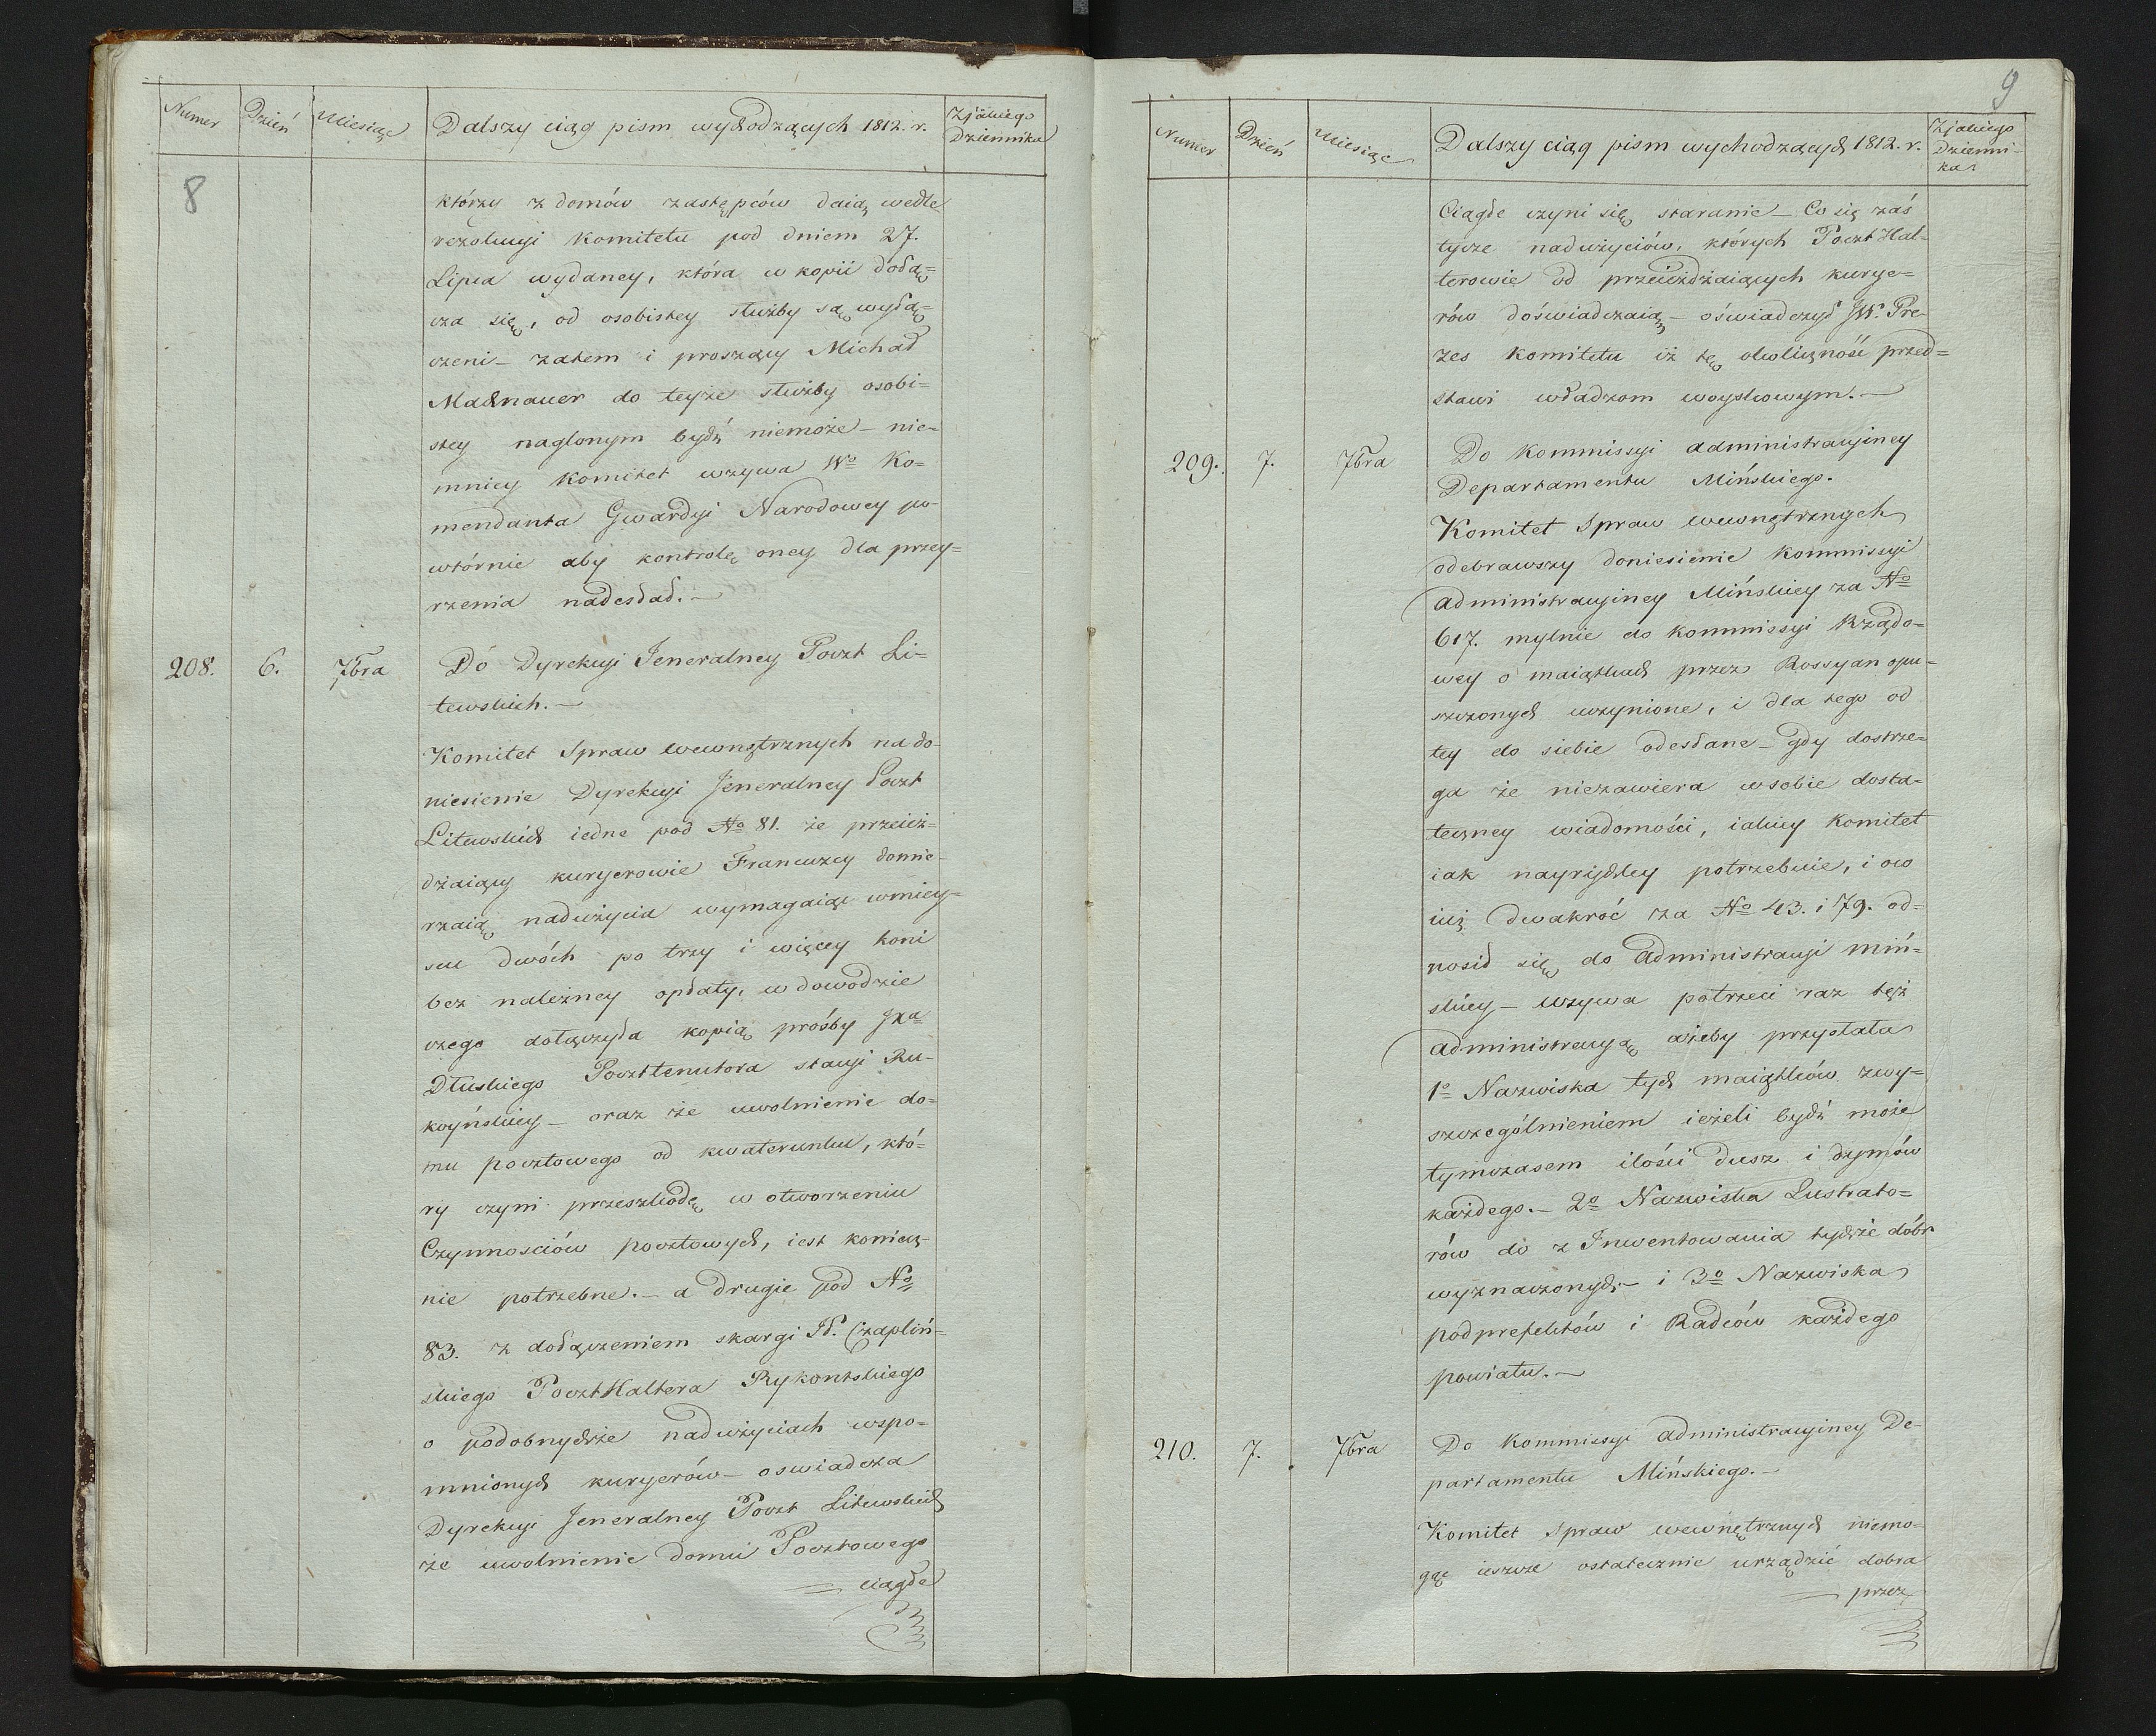 Numer Dzień Miesiąc Dalszy ciąg pism wychodzących 1812. r. Z jakiego
Dziennika
8
którzy z domów zastępców daią wedle
rezolucyi Komitetu pod dniem 27.
Lipca wydaney, która w kopii dołą=
cza się, od osobistey służby są wyłą=
czeni – zatem i proszący Michał
Machnauer do teyże służby osobi=
stey naglonym bydź niemoże – nie=
mniey Komitet wzywa Wo Ko=
mendanta Gwardyi Narodowey po=
wtórnie aby kontrolę oney dla przey=
rzenia nadesłał. –
208. 6. 7bra Do Dyrekcyi Jeneralney Poczt Li=
tewskich. –
Komitet Spraw wewnętrznych na do=
niesienie Dyrekcyi Jeneralney Poczt
Litewskich iedne pod No 81. że przeież=
dżaiący kuryerowie Francuzcy domie=
rzaią nadużycia wymagaiąc wmiey=
scu dwóch po trzy i więcey koni
bez należney opłaty, w dowodzie
czego dołączyła kopią prośby Jza
Dłuskiego Poczttenutora stacyi Ru=
koyńskiey – oraz że uwolnienie do=
mu pocztowego od kwaterunku, któ=
ry czyni przeszkodę w otworzeniu
Czynnosciów pocztowych, iest koniecz=
nie potrzebne. – a drugie pod No
83. z dołączeniem skargi JP. Czapliń=
skiego PocztHaltera Rykontskiego
o podobnychże nadużyciach wspo=
mnionych kuryerów – oswiadcza
Dyrekcyi Jeneralney Poczt Litewskich
że uwolnienie domu Pocztowego
ciągłe
9
Numer Dzień Miesiąc Dalszy ciąg pism wychodzących 1812. r. Z jakiego
Dzienni=
ka
Ciągłe czyni się staranie – Co się zaś
tycze nadużyciów, których Poczt Hal=
terowie od przeieżdżaiących kurye=
rów doświadczaią – oświadczył JW. Pre=
zes Komitetu iż tę okoliczność przed=
stawi władzom woyskowym. –
209. 7. 7bra Do Kommissyi administracyiney
Departamentu Mińskiego.
Komitet Spraw wewnętrznych
odebrawszy doniesienie Kommissyi
administracyiney Mińskiey za No
617. mylnie do Kommissyi Rządo=
wey o maiątkach przez Rossyan opu=
szczonych uczynione, i dla tego od
tey do siebie odesłane – gdy dostrze=
ga że niezawiera wsobie dosta=
teczney wiadomości, iakiey Komitet
iak nayrychley potrzebuie, i oco
iuż dwakroć za No 43. i 79. od=
nosił się do administracyi miń=
skiey – wzywa potrzeci raz tęż
administracyą ażeby przysłała
1o Nazwiska tych maiątków zwy=
szczególnieniem ieżeli bydź może
tymczasem ilości dusz i dymów
każdego. – 2o Nazwiska Lustrato=
rów do z Inwentowania tychże dóbr
wyznaczonych. – i 3o Nazwiska
podprefektów i Radców każdego
powiatu. –
210. 7. 7bra Do Kommissyi administracyiney De=
partamentu Mińskiego. –
Komitet Spraw wewnętrznych niemo=
gąc ieszcze ostatecznie urządzić dobra
przez